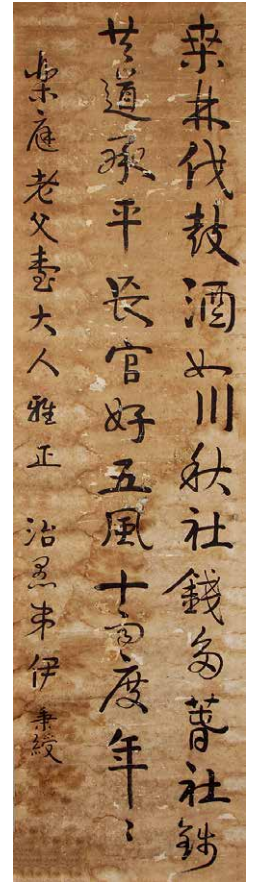 桒林伐鼓酒如川秋社錢多萅社錢
共道承平長官好五風十雨度年〻
樂庭老父臺大人雅正 治愚弟伊秉綬